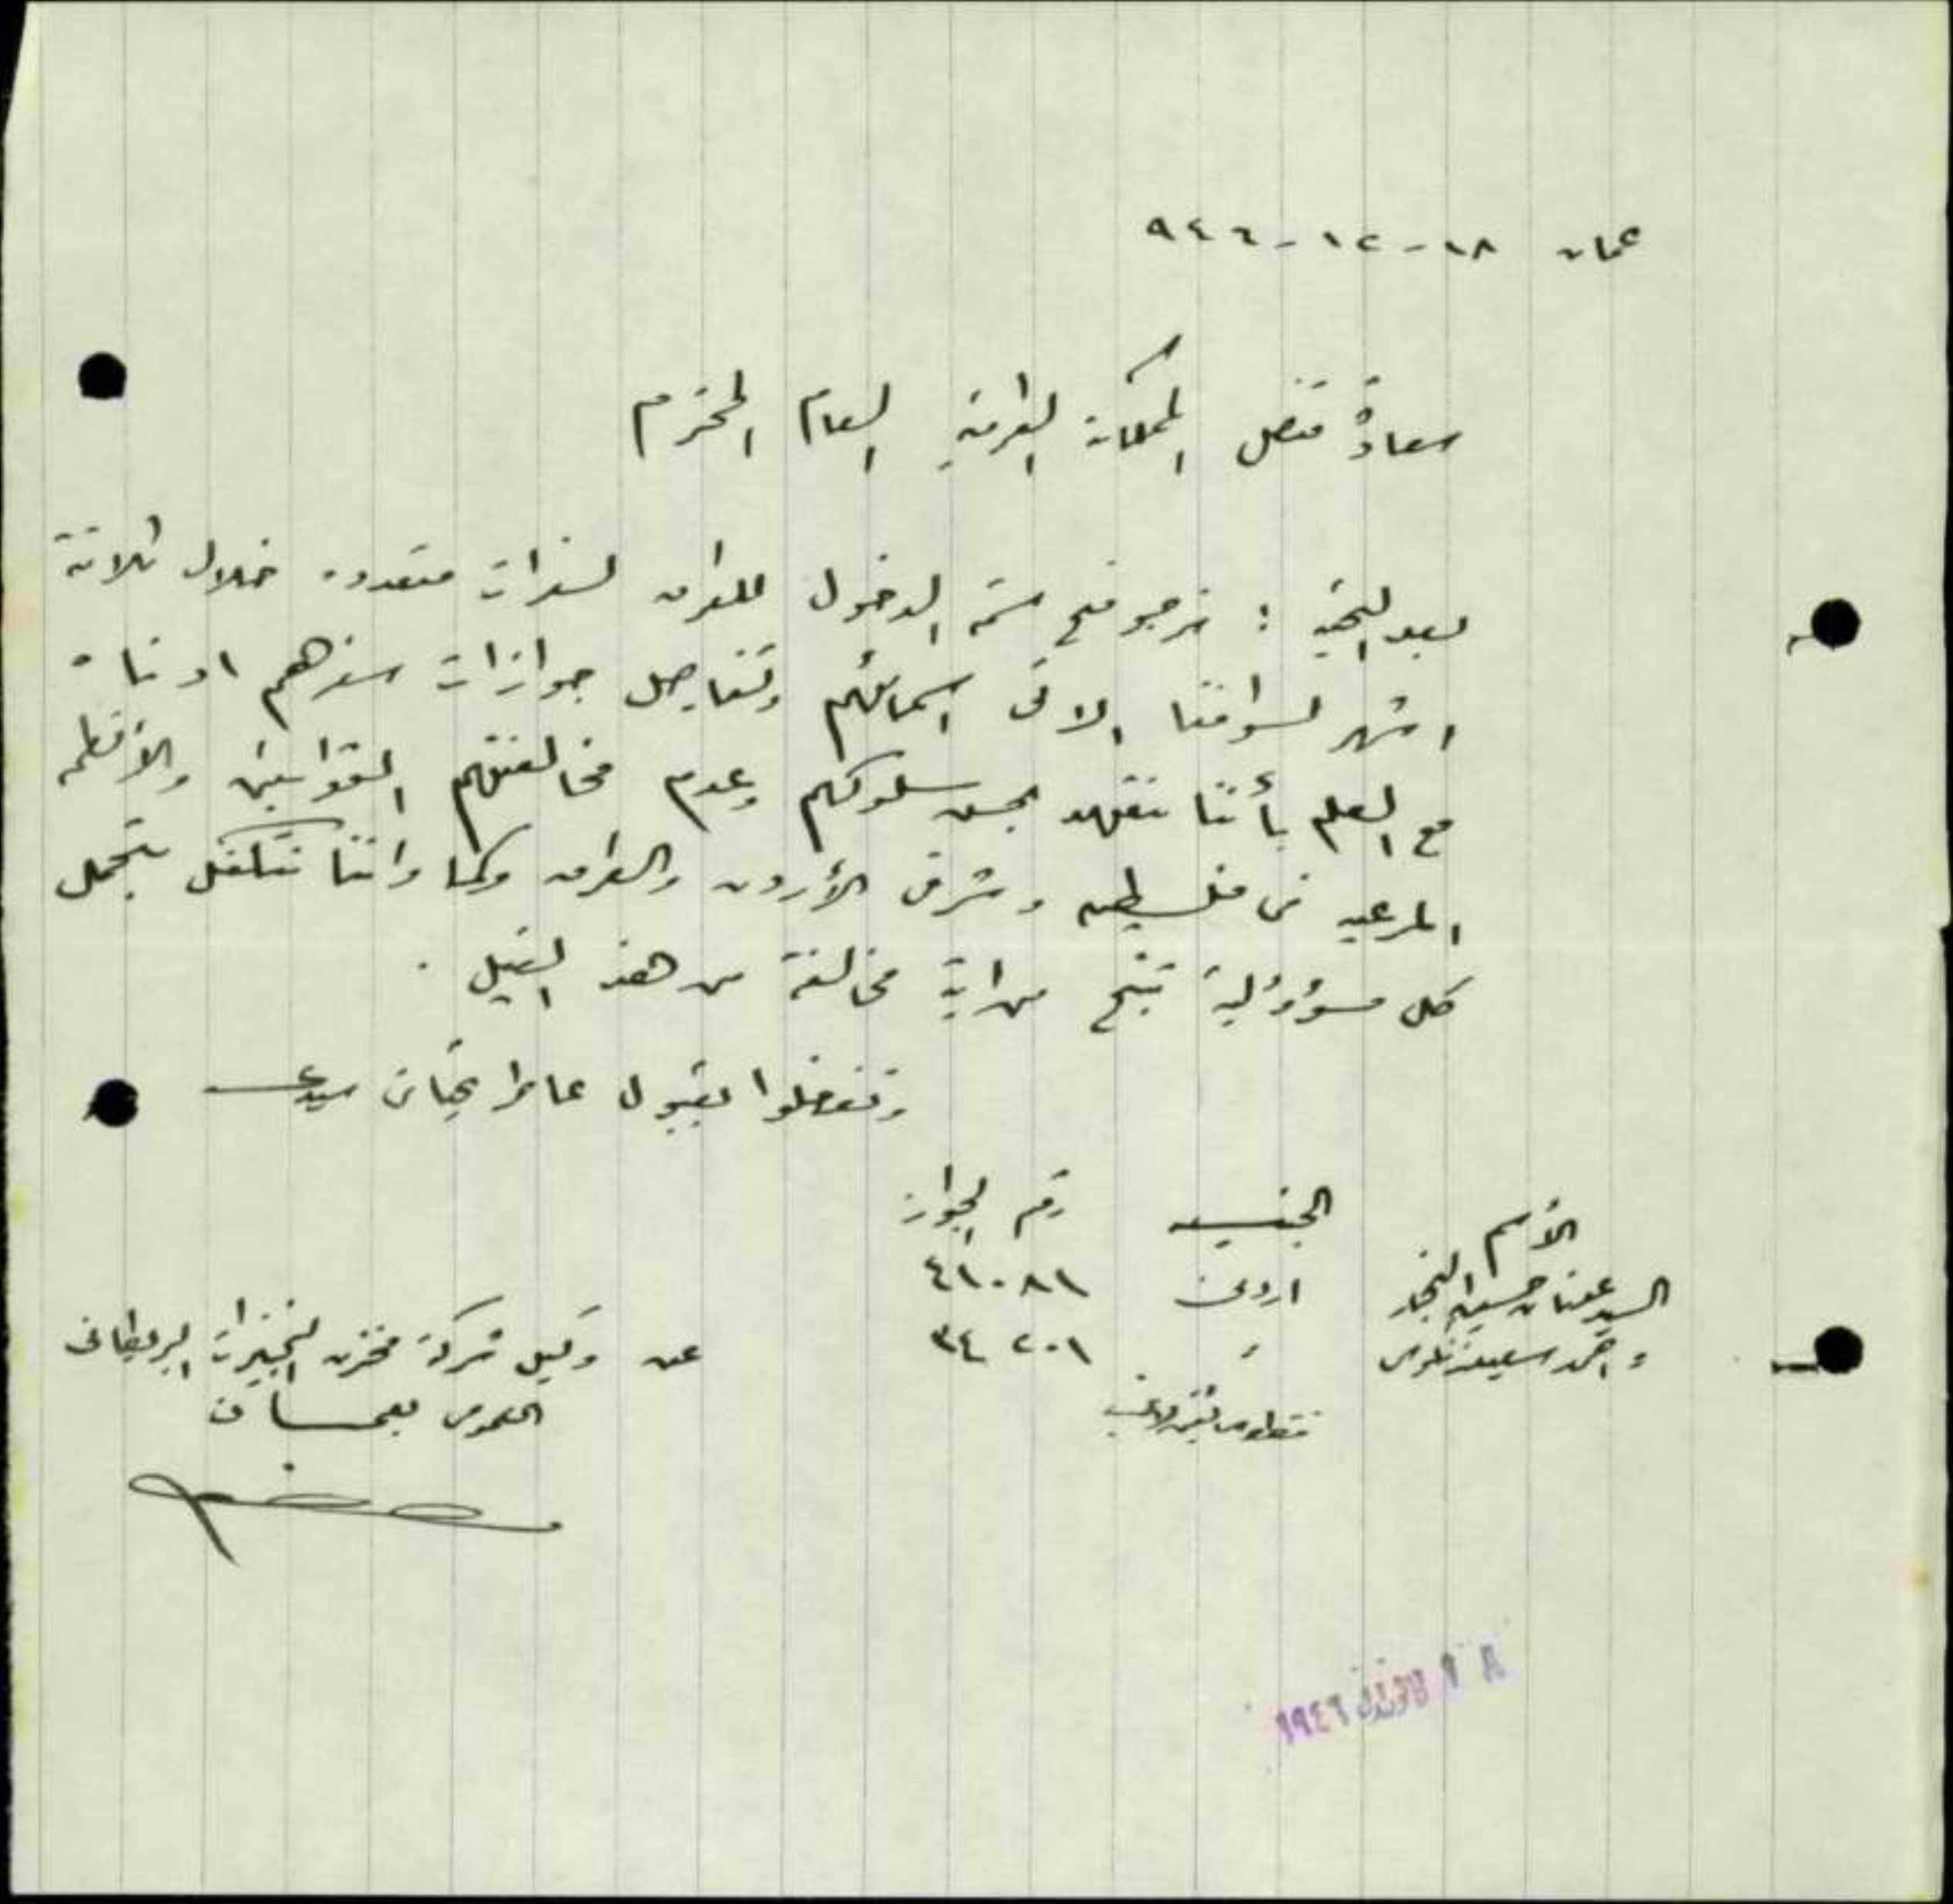 عمان ١٨-١٢-٩٤٦
سعادة قنصل المملكة العراقية العام المحترم
بعد التحية : نرجو منح سمة الدخول للعراق لسفرات متعددة خلال ثلاثة
اشهر لسواقنا الاتي اسمائهم وتفاصيل جوازات سفرهم ادناه
مع العلم بأننا نتعهد بحسن سلوكهم وعدم مخالفتهم القوانين والأنظمه
المرعيه في فلسطين وشرق الأردن والعراق وكما واننا نتكفل بتحمل
كل مسؤوولية تنتج من اية مخالفة من هذا القبيل .
وتفضلوا بقبول عاطر تحياتي سيدي
الأسم الجنسيه رقم الجواز
السيد عدنان حسين النجار اردني ٤١٠٨١
، احمد سعيد ، ٣٤٢٠١
فقط
عن وكيل شركة مخزن التجهيزات البريطاني
العمومي بعمان
١٨ ١٩٤٦